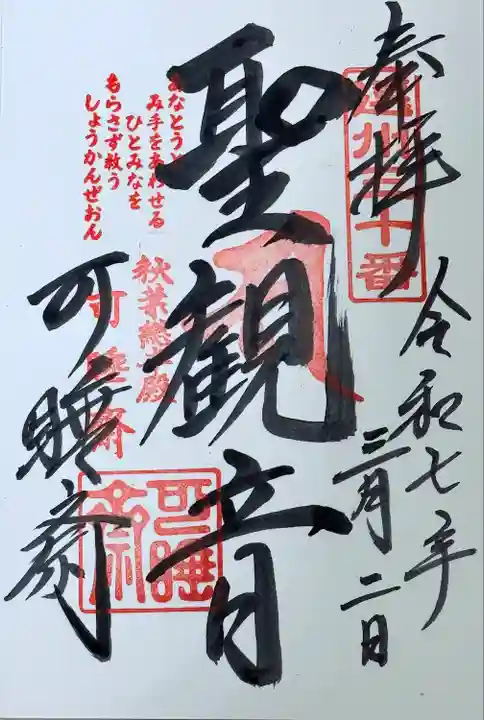 奉拝
遠州三十番
令和七年
三月二日
聖観音
あなとうと
み手をあわせる
ひとみなを
もらさず救う
しょうかんぜおん
秋葉總本殿
可睡斎
可睡齋
可睡斎